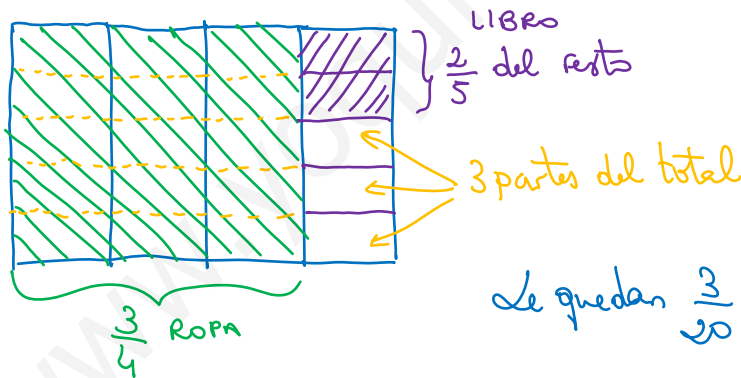 LIBRO
2/5 del resto
3 partes del total
3/4 ROPA
Le quedan 3/20